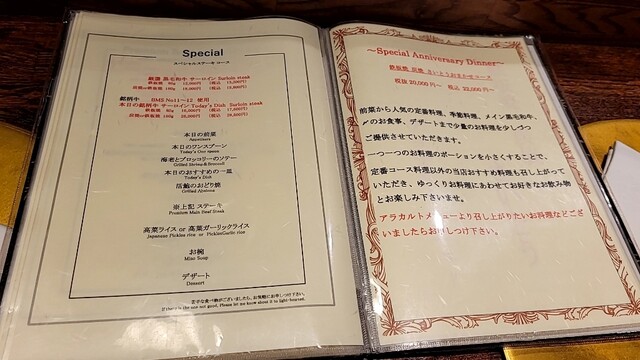 Special
スペシャルステーキ コース
厳選 黒毛和牛 サーロイン Surloin steak
銘柄牛 BMS No11〜12 使用
本日の銘柄牛 サーロイン Today's Dish Surloin steak
本日の前菜
Appetizers
本日のワンスプーン
Today's One spoon
海老とブロッコリーのソテー
Grilled Shrimp & Broccoli
本日のおすすめの一皿
Today's Dish
活鮑のおどり焼
Grilled Abalone
※上記 ステーキ
Premium Main Beef Steak
高菜ライス or 高菜ガーリックライス
Japanese Pickles rice or PicklesGarlic rice
お椀
Miso Soup
デザート
Dessert
苦手な食べ物がございましたら、お気軽にお申しつけ下さい。
If there is the one not good, Please let me know about it to light-hearted.
〜Special Anniversary Dinner〜
税抜 20,000円〜 税込 22,000円〜
前菜から人気の定番料理、季節料理、メイン黒毛和牛、
〆のお食事、デザートまで少量のお料理を少しづつ
ご提供させていただきます。
一つ一つのお料理のポーションを小さくすることで、
定番コース料理以外の当店おすすめ料理も召し上がって
いただき、ゆっくりお料理にあわせてお好きなお飲み物
とお楽しみ下さいませ。
アラカルトメニューより召し上がりたいお料理などござ
いましたらお申しつけ下さい。